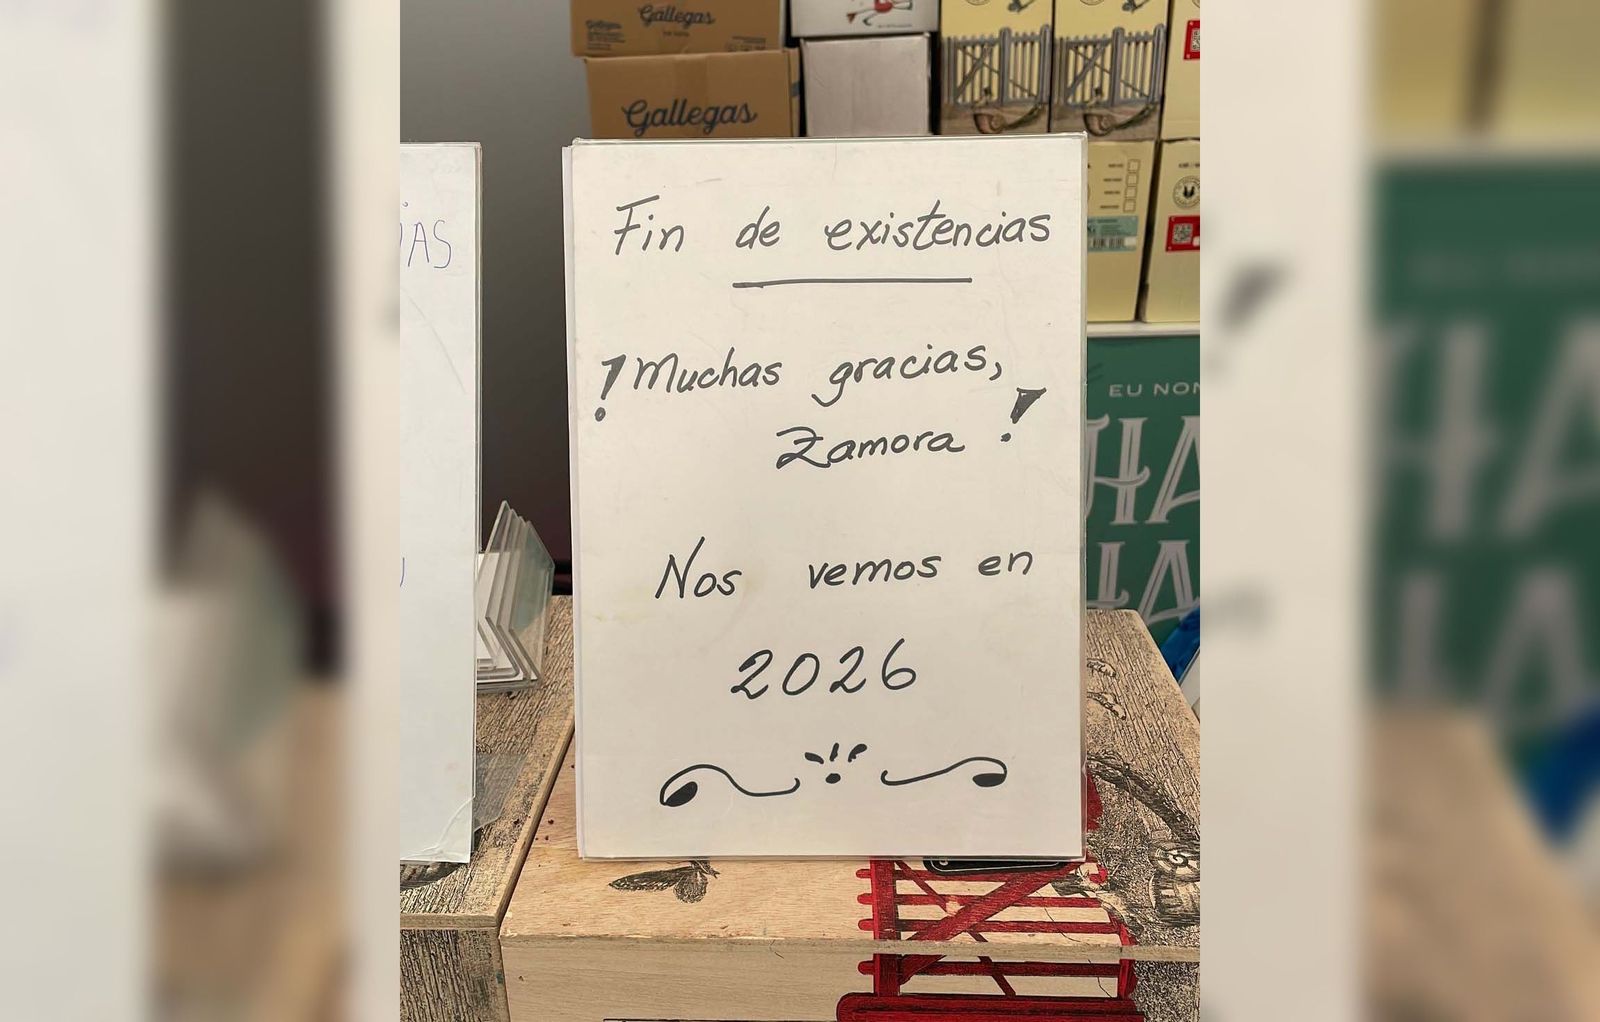 Gallegas
Gallegas
Fin de existencias
!Muchas gracias,
Zamora!
Nos vemos en
2026
IAS
EU NON